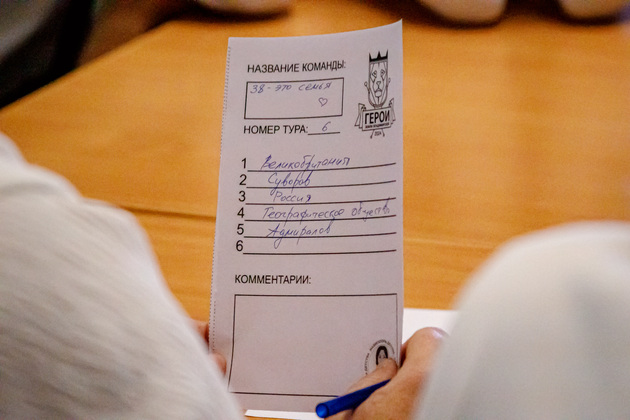 НАЗВАНИЕ КОМАНДЫ:
38 - это семья
ГЕРОИ
2024
НОМЕР ТУРА: 6
1 Великобритания
2 Суворов
3 Россия
4 Географическое общество
5 Адмиралов
6
КОММЕНТАРИИ: